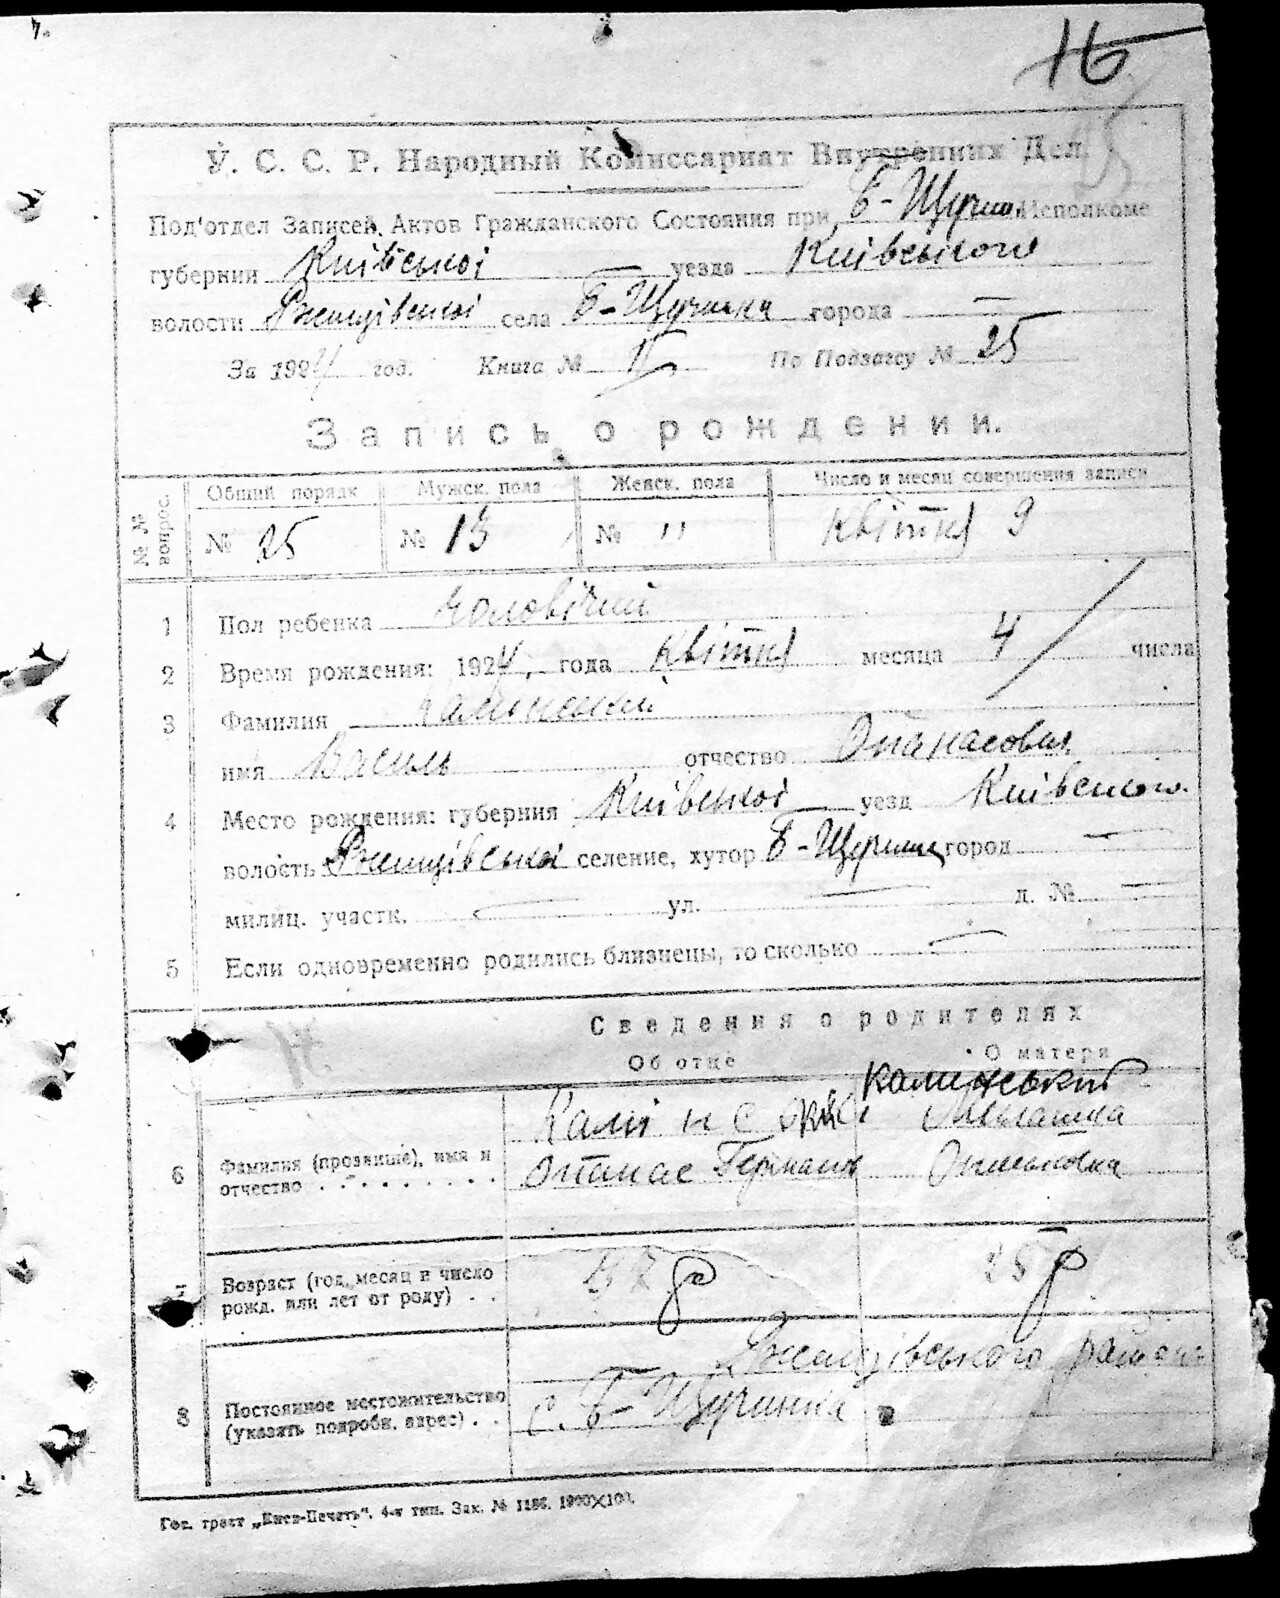 16
25
У. С. С. Р. Народный Комиссариат Внутренних Дел.
Под'отдел Записей Актов Гражданского Состояния при Б-Щучин. Исполкоме
губернии Київської уезда Київського
волости Ржищівської села Б-Щучинка города —
За 1924 год. Книга № II По Подзагсу № 25
Запись о рождении.
№ № вопрос. Общий порядк Мужск. пола Женск. пола Число и месяц совершения записи
№ 25 № 13 № " Квітня 9
1 Пол ребенка чоловічий
2 Время рождения: 1924, года Квітня месяца 4 числа
3 Фамилия Калінський
имя Василь отчество Опанасович
4 Место рождения: губерния Київської уезд Київського.
волость Ржищівської селение, хутор Б-Щучинка город —
милиц. участк. — ул. — д. № —
5 Если одновременно родились близнецы, то сколько —
Сведения о родителях
Об отце О матери
Калинський
Калінський Мелашка
6 Фамилия (прозвище), имя и отчество . . . . . . . . . Опанас Германов
7 Возраст (год, месяц и число рожд. или лет от роду) . . р 25 р
Ржищівського району
8 Постоянное местожительство (указать подробн. адрес) . . с. Б-Щучинка
Гос. трест „Киев-Печать“. 4-я тип. Зак. № 1186. 1000×100.